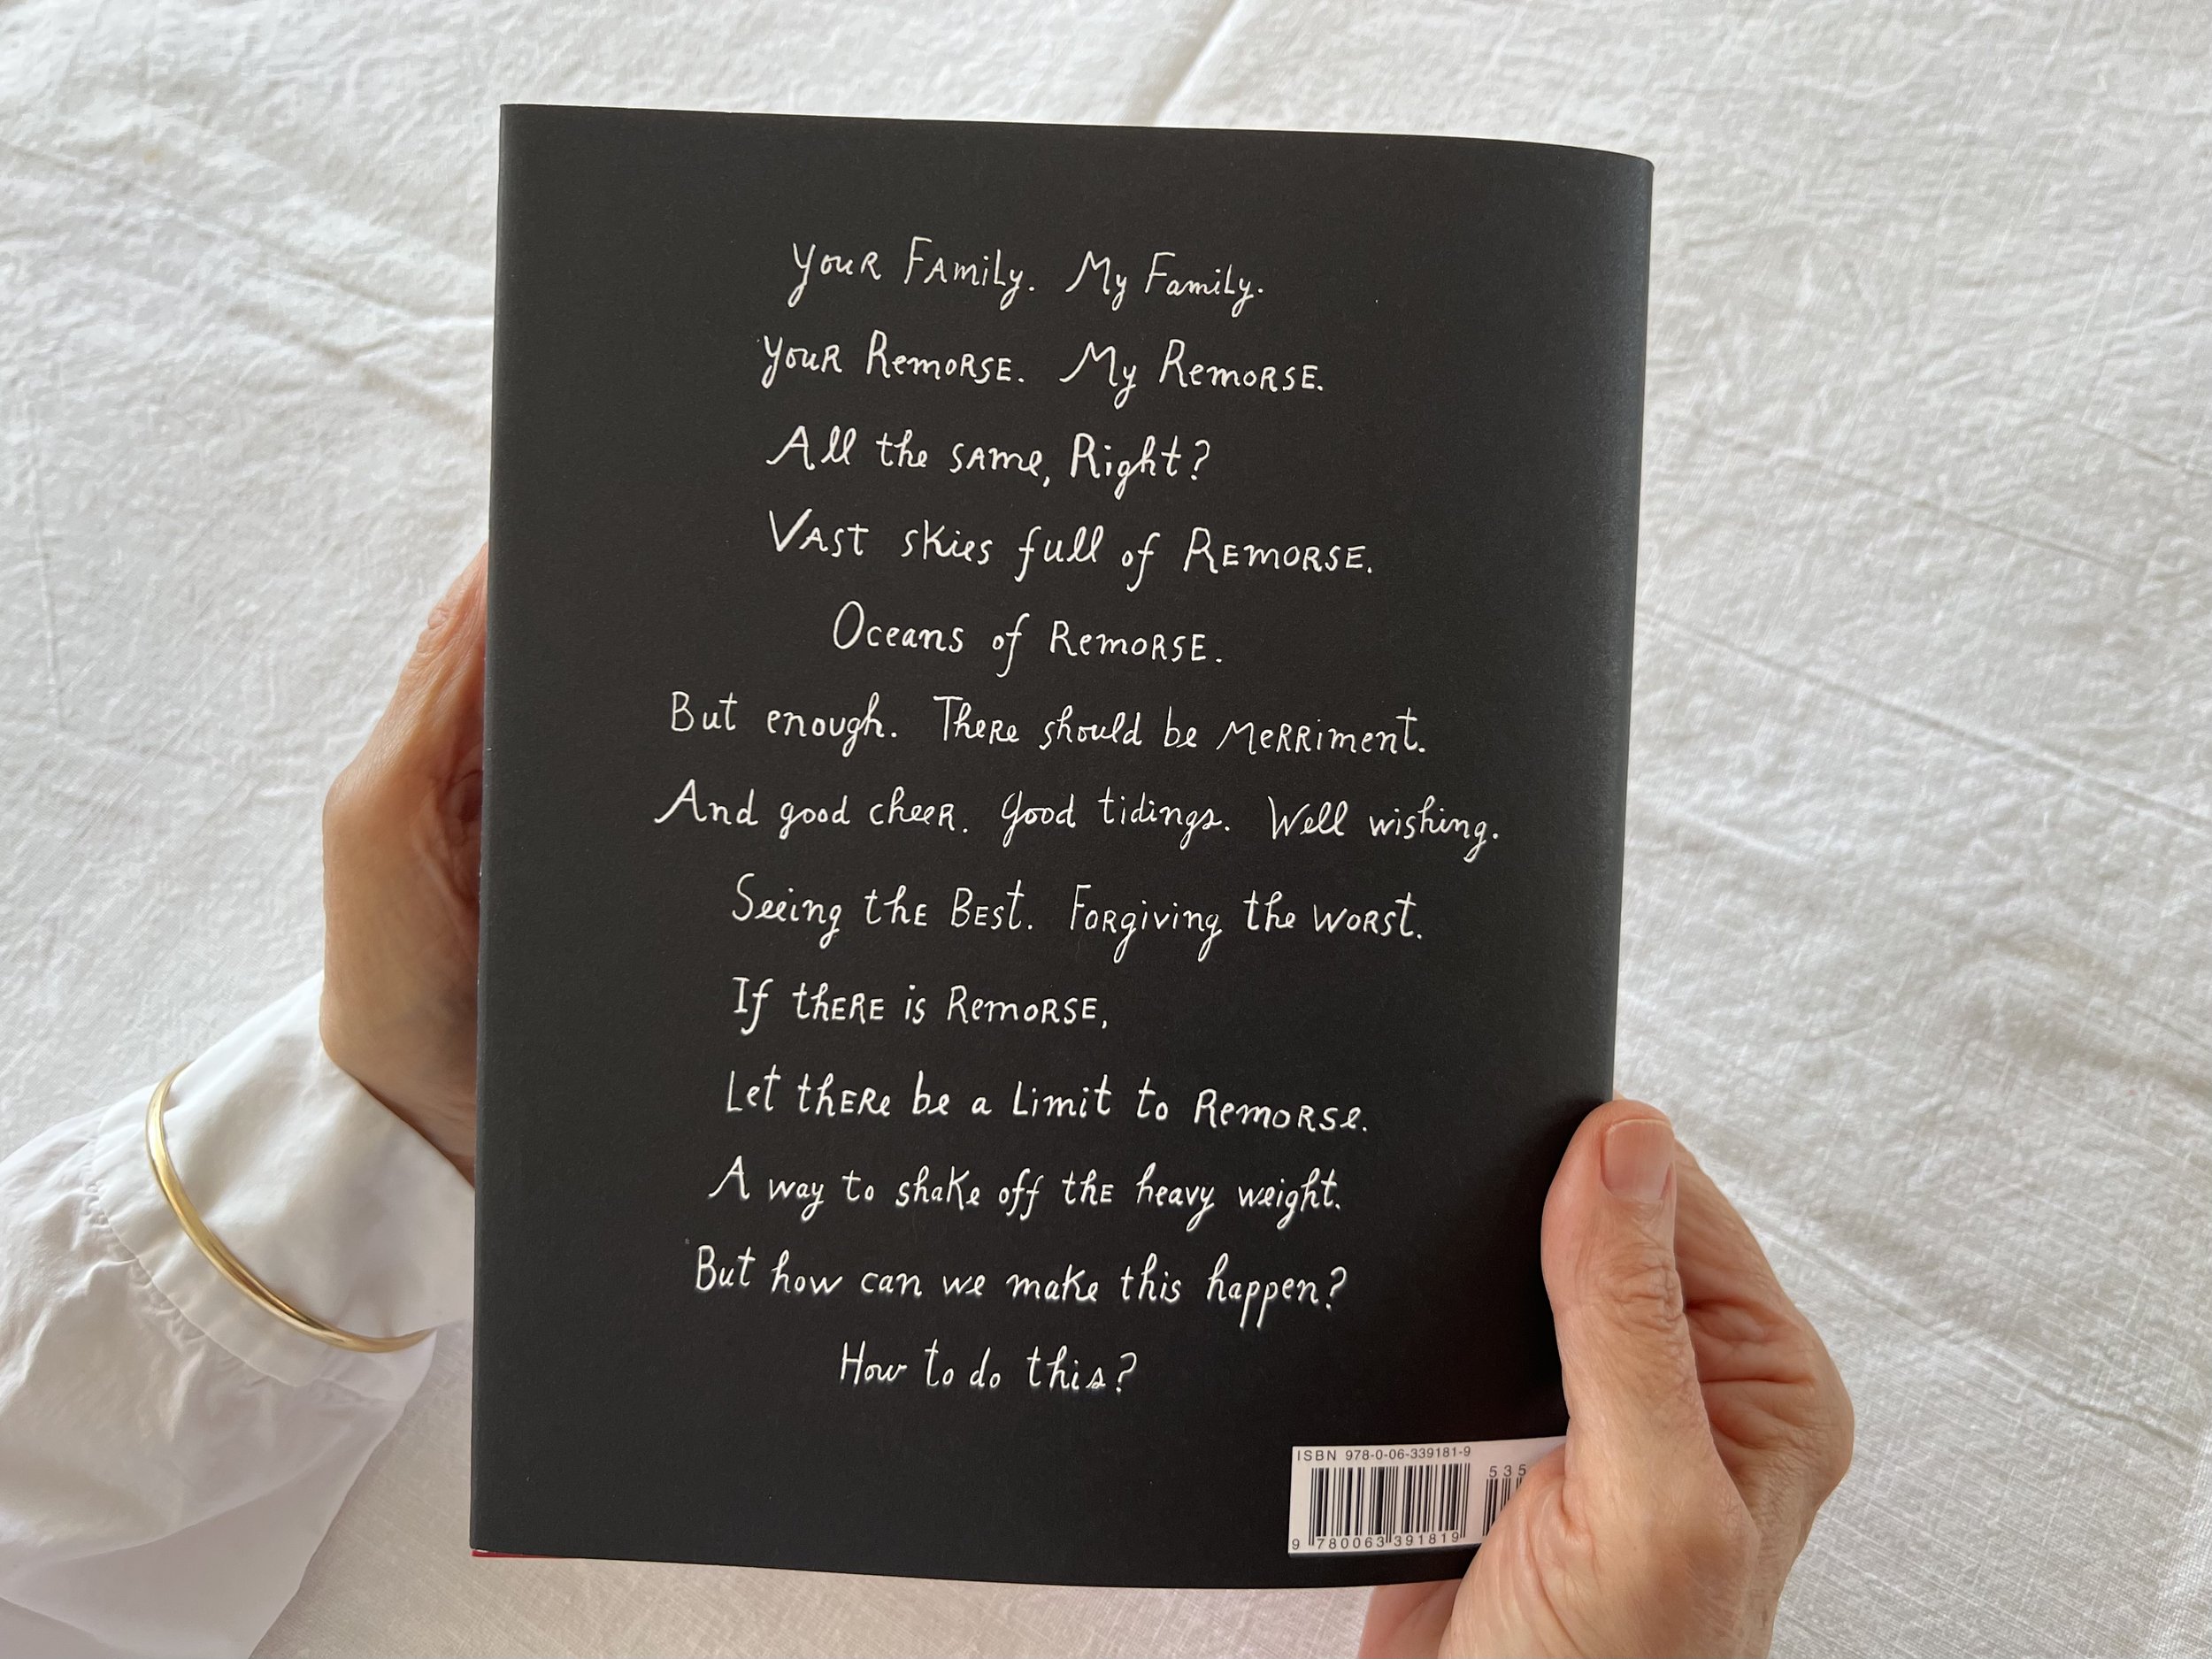 Your Family. My Family.
Your Remorse. My Remorse.
All the same, Right?
Vast skies full of Remorse.
Oceans of Remorse.
But enough. There should be Merriment.
And good cheer. Good tidings. Well wishing.
Seeing the Best. Forgiving the worst.
If there is Remorse,
Let there be a Limit to Remorse.
A way to shake off the heavy weight.
But how can we make this happen?
How to do this?
ISBN 978-0-06-339181-9
535
9 780063 391819